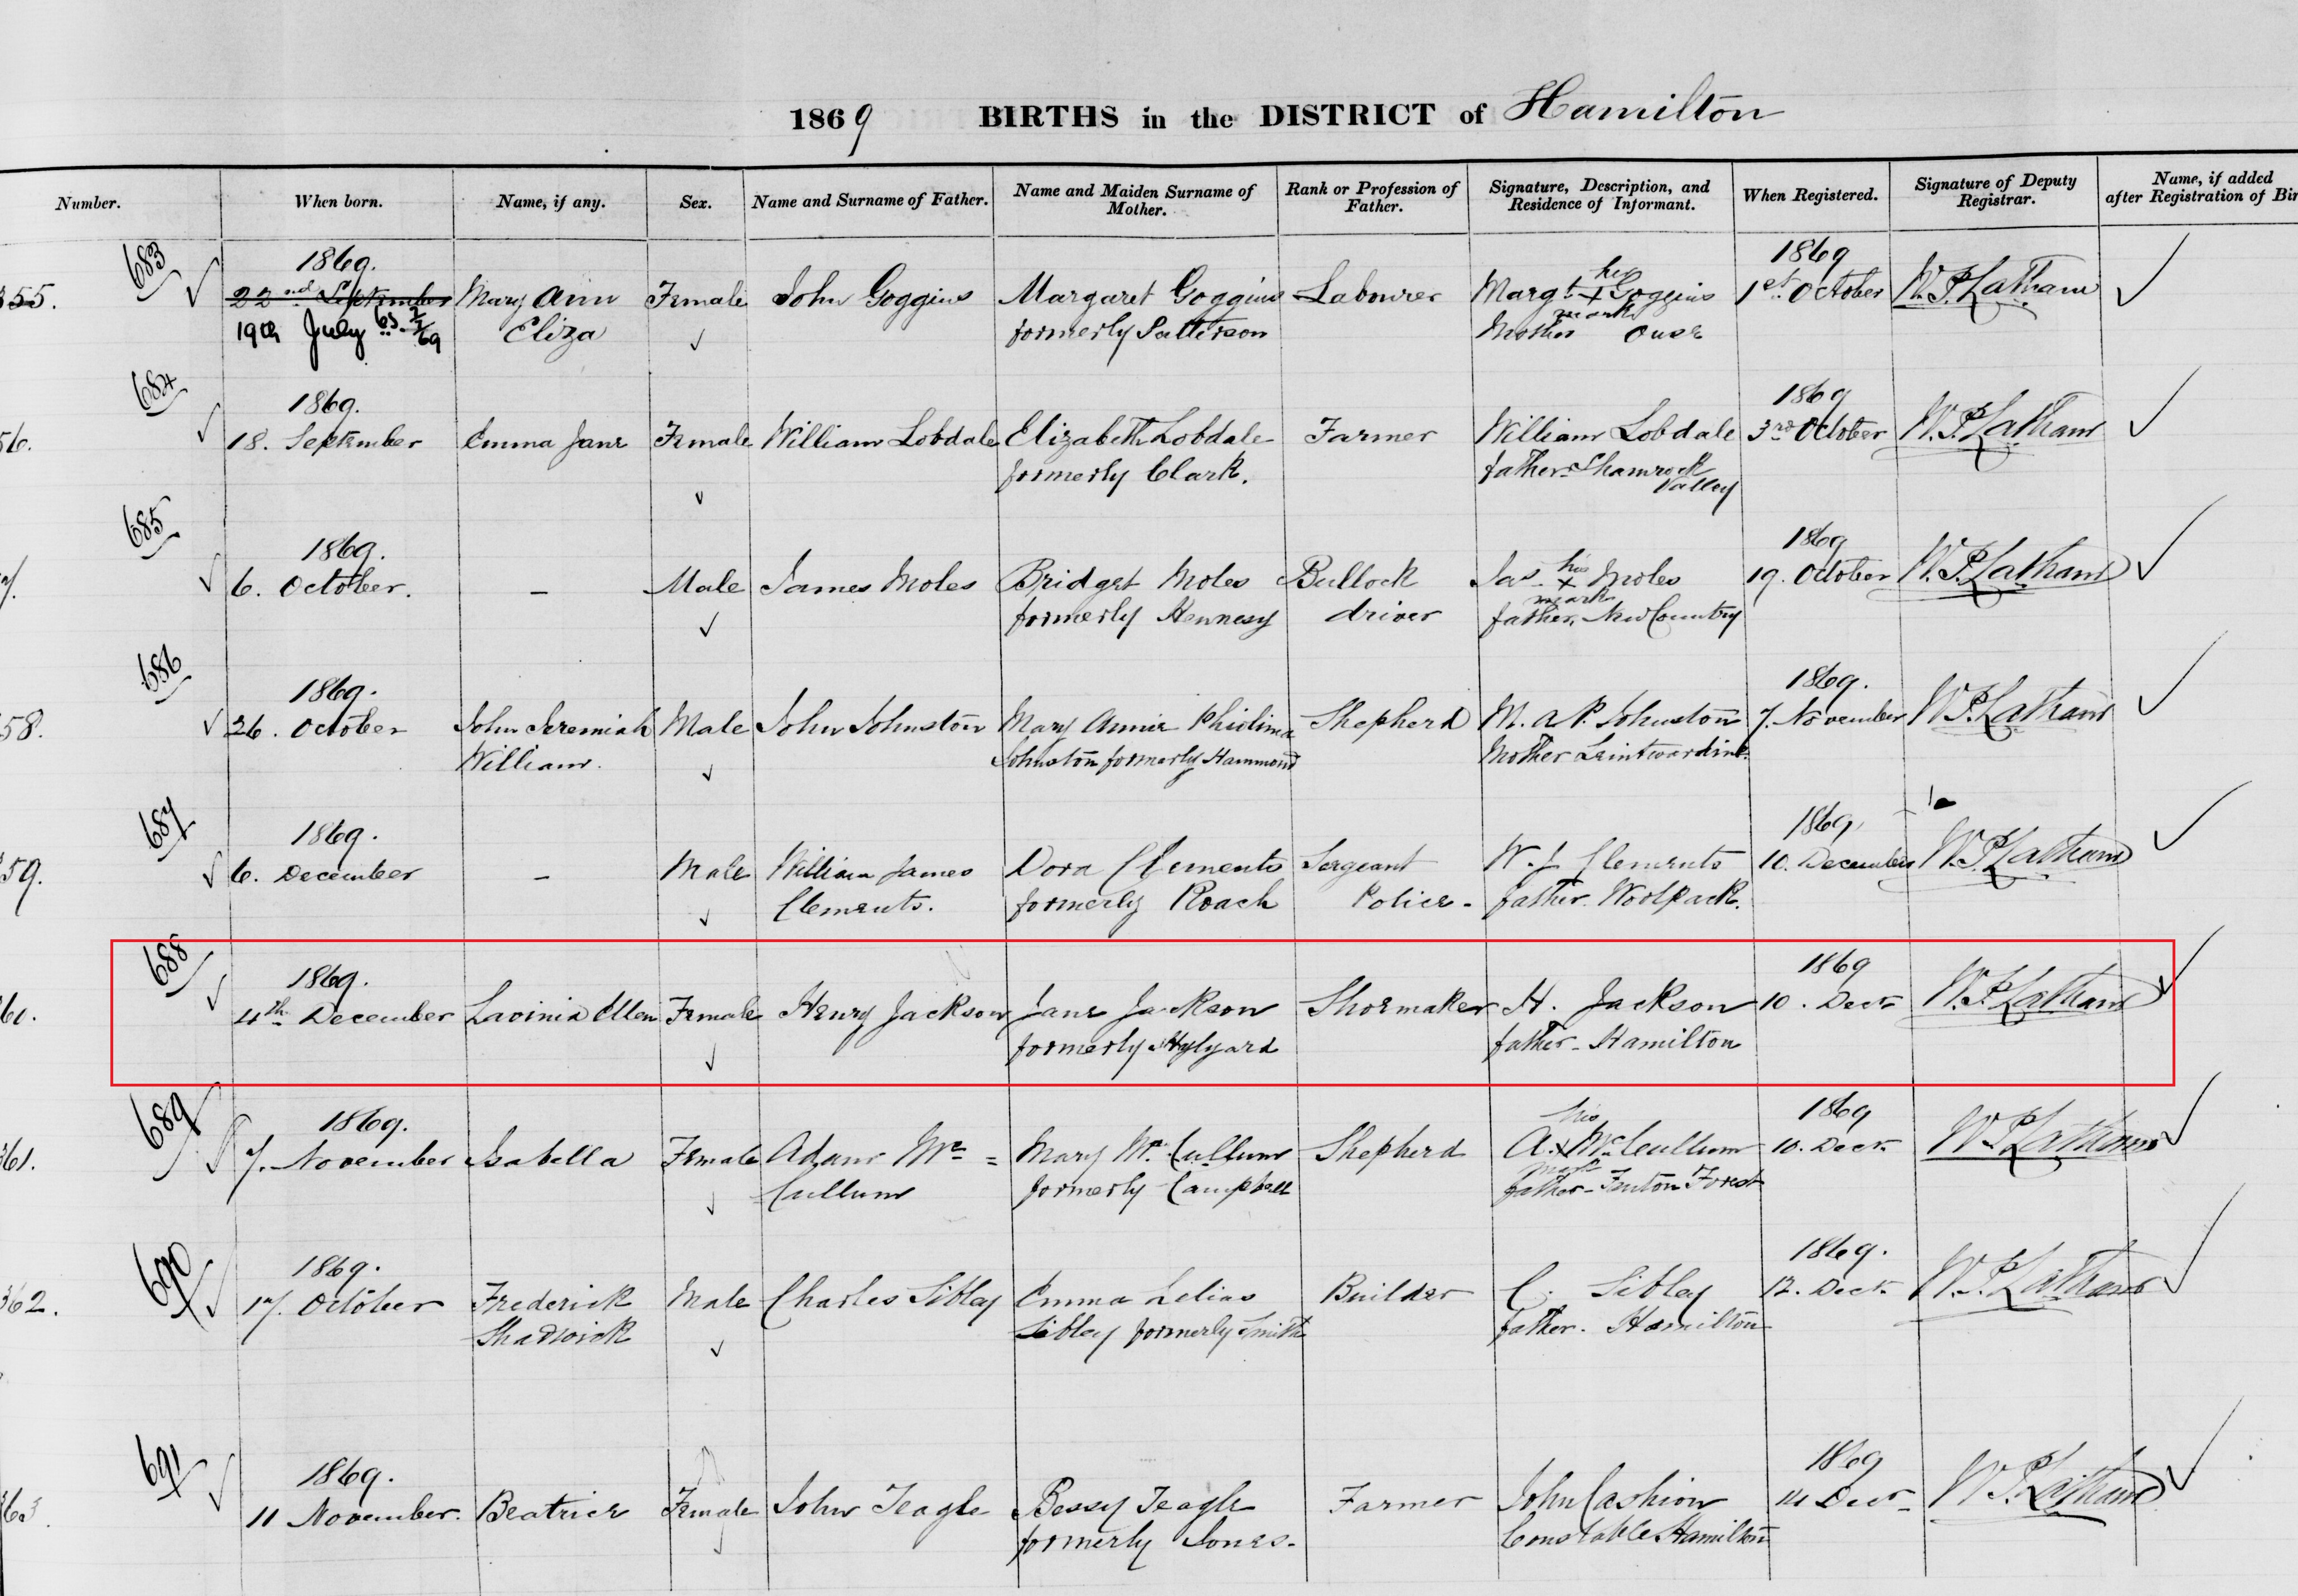 1869 BIRTHS in the DISTRICT of Hamilton
Number. When born. Name, if any. Sex. Name and Surname of Father. Name and Maiden Surname of Mother. Rank or Profession of Father. Signature, Description, and Residence of Informant. When Registered. Signature of Deputy Registrar. Name, if added after Registration of Bir
683 1869. his 1869
355. 22nd September Mary Ann Female John Goggins Margaret Goggins Labourer Margt + Goggins 1st October W. P. Latham
19th July Eliza formerly Patterson mark Mother Ouse
684 1869. 1869
56. 18. September Emma Jane Female William Lobdale Elizabeth Lobdale Farmer William Lobdale 3rd October W. P. Latham
formerly Clark. father Shamrock Valley
685 1869. 1869
7. 6. October. – Male James Moles Bridget Moles Bullock Jas his + Moles 19. October W. P. Latham
formerly Hennesy driver mark father. New Country
686 1869. 1869.
58. 26. October John Jeremiah Male John Johnston Mary Annie Phidima Shepherd M. A. P. Johnston 7. November W. P. Latham
William. Johnston formerly Hammond Mother Leintwardine.
687 1869. 1869
59. 6. December – Male William James Dora Clements Sergeant W. J Clements 10. December W. P. Latham
Clements. formerly Roach Police. father. Woolpack.
688 1869. 1869
60. 4th December Lavinia Ellen Female Henry Jackson Jane Jackson Shoemaker H. Jackson 10. Decr W. P. Latham
formerly Hylyard father - Hamilton
689 1869. his 1869
361. 7. November Isabella Female Adam Mc= Mary Mc Cullum Shepherd A. + McCullum 10. Decr W. P. Latham
Cullum formerly Campbell mark father - Fenton Forest
690 1869. 1869.
362. 17. October Frederick Male Charles Sibley Emma Lelias Builder C. Sibley 12. Decr W. P. Latham
Shadwick Sibley formerly Smith father. Hamilton
691 1869. 1869
363 11 November. Beatrice Female John Teagle Bessy Teagle Farmer John Cashion 14 Decr W. P. Latham
formerly Jones. Constable Hamilton